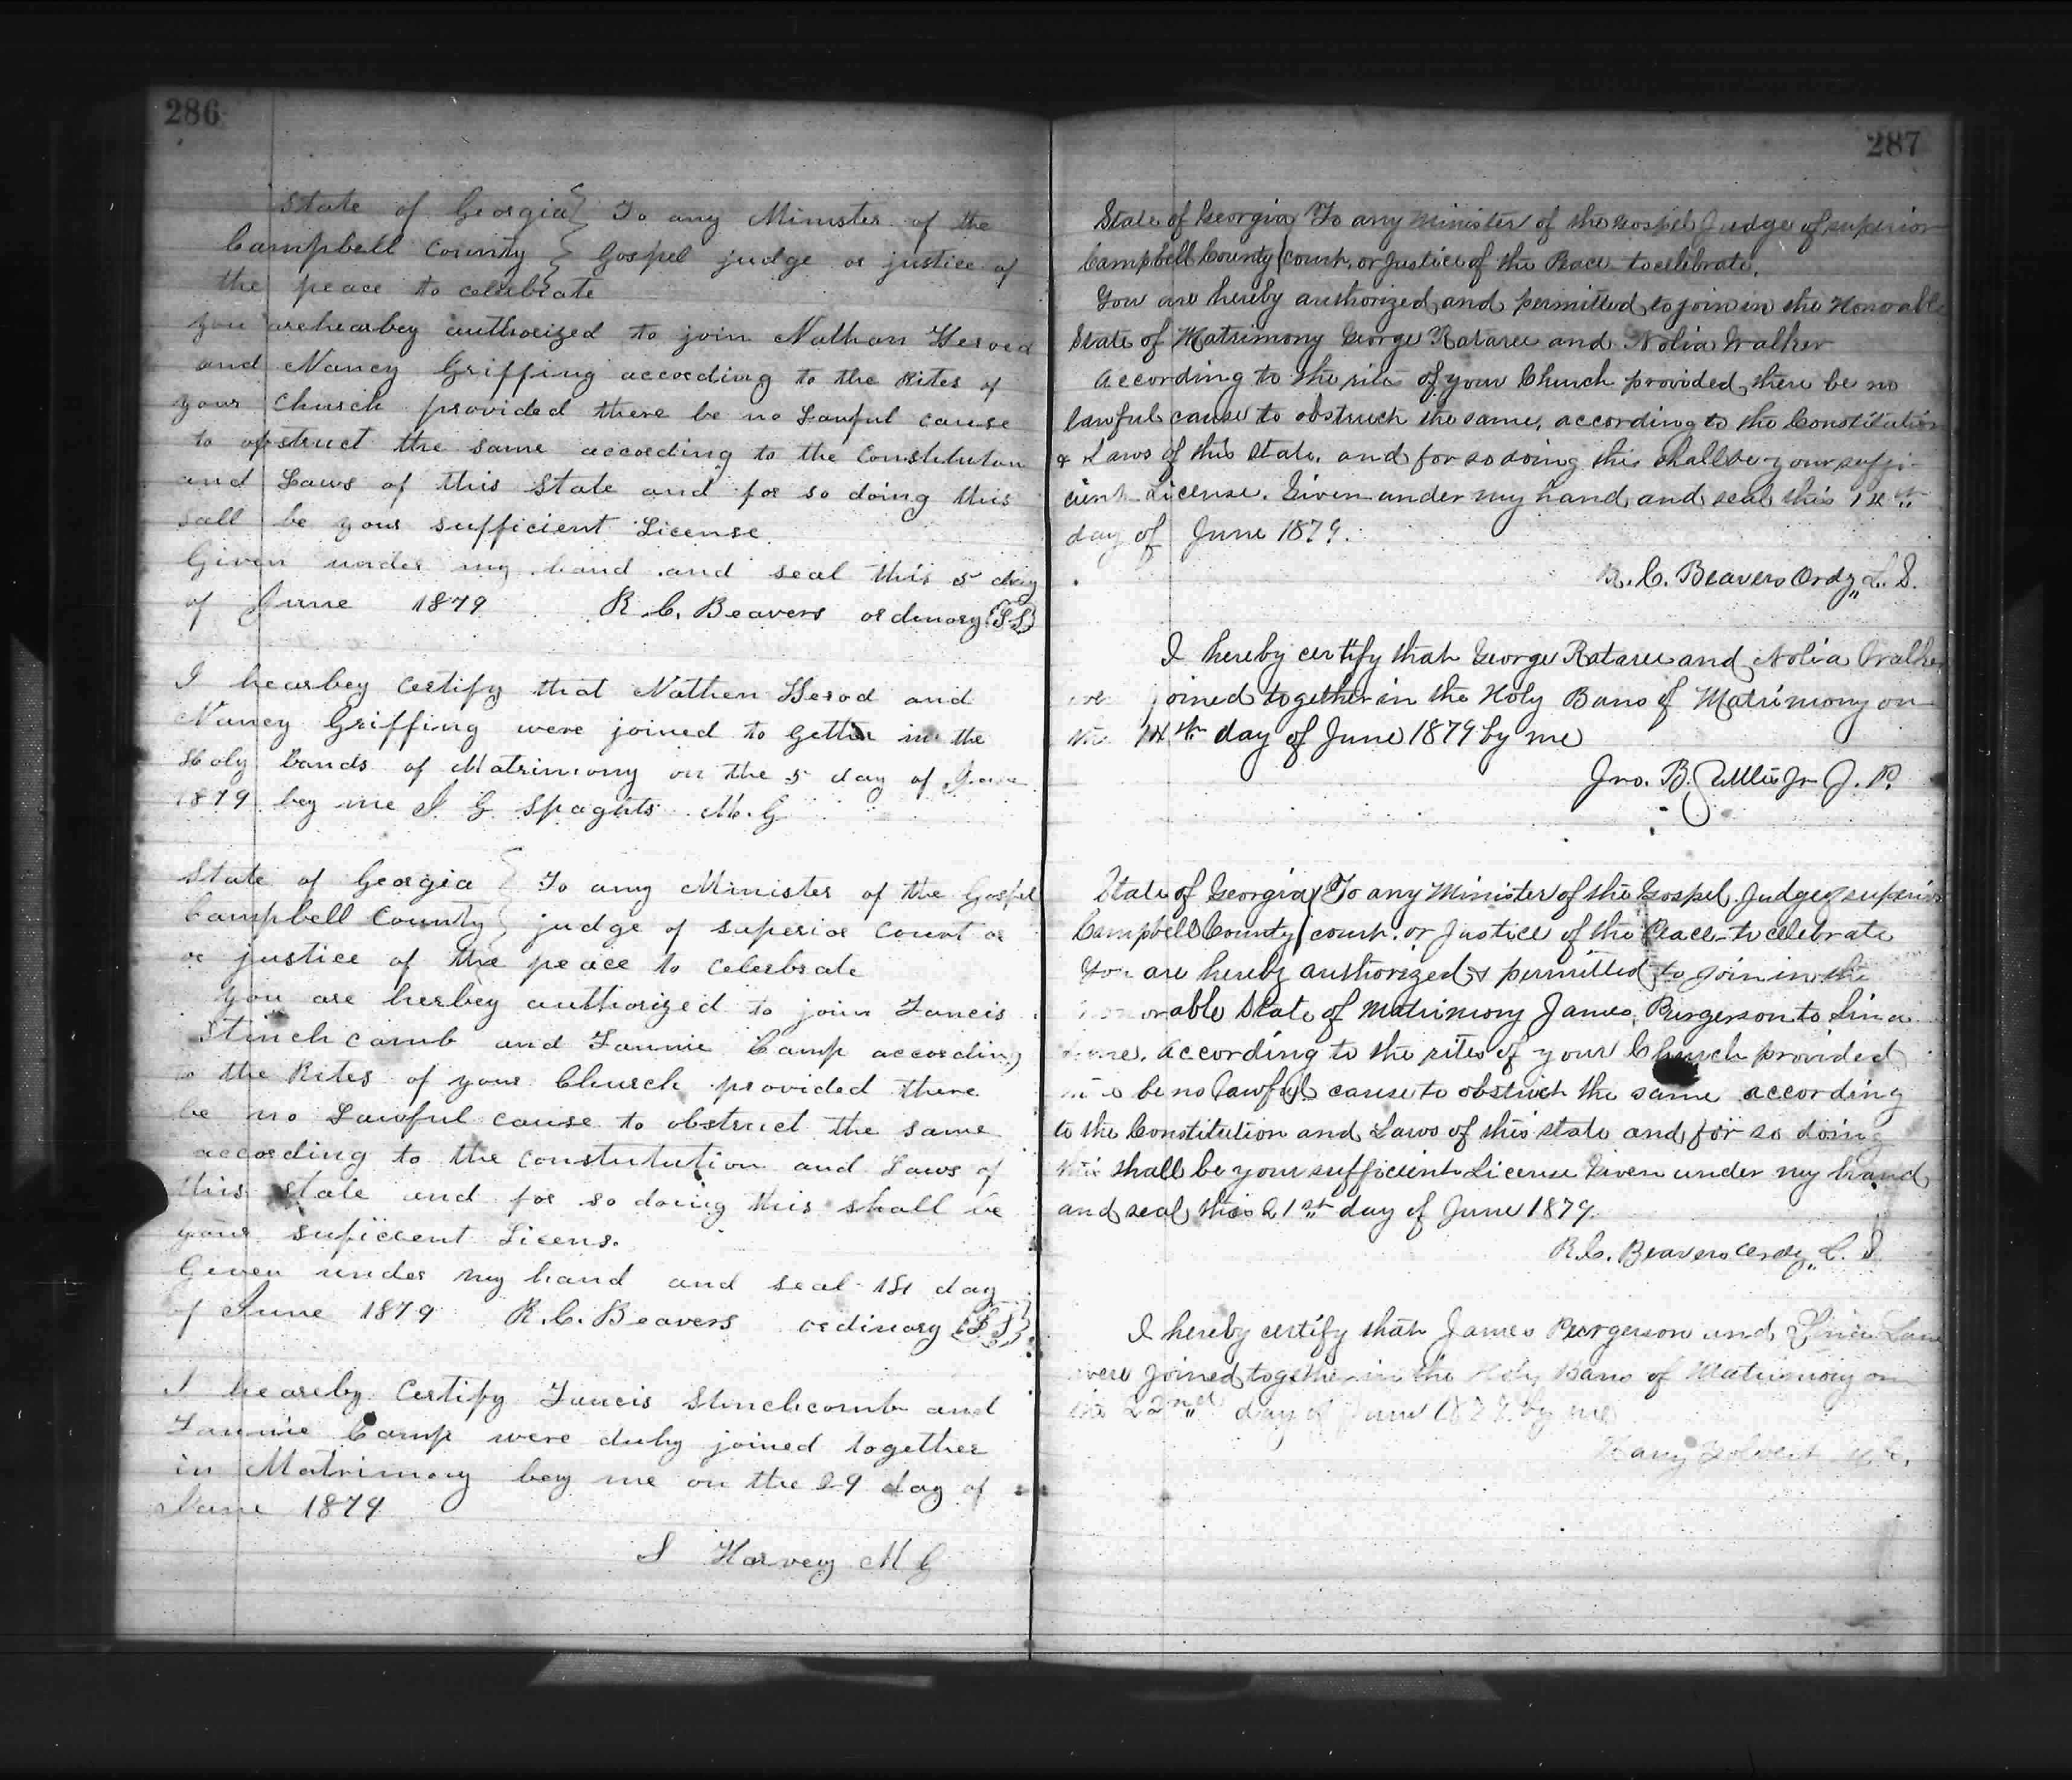 286
State of Georgia } To any Minister of the
Campbell County } Gospel judge or justice of
the peace to celebrate
you arehearbey authorized to join Nathan Herod
and Nancy Griffing according to the Rites of
your Church provided there be no Lawful cause
to opstruct the same according to the Constitution
and Laws of this State and for so doing this
sall be your sufficient License
Given under my hand and seal this 5 day
of June 1879 R. C. Beavers ordinary (LS)
I hearbey Certify that Nathen Herod and
Nancy Griffing were joined to gether in the
Holy bands of Matrimony on the 5 day of June
1879 bey me I G Spaghts M. G
State of Georgia } To any Minister of the Gospel
Campbell County } judge of superior Court or
or justice of the peace to celerbrate
you are herbey authorized to join Fancis
Stinchcomb and Fannie Camp according
to the Rites of your Church provided there
be no Lawful cause to obstruct the same
according to the constutution and Laws of
this state and for so doing this shall be
your suficient Licens.
Given under my hand and seal 1st day
of June 1879 R. C. Beavers ordinary (LS)
I heareby Certify Fancis Stinchcomb and
Fannie Camp were duly joined together
in Matrimony bey me on the 29 day of
June 1879
S Harvey M G
287
State of Georgia } To any Minister of the Gospel Judge of superior
Campbell County } court, or Justice of the Peace to celibrate,
You are hereby authorized and permitted to join in the Honorable
State of Matrimony George Rataree and Nolia Walker
According to the rites of your Church provided there be no
lawful cause to obstruch the same, according to the Constitution
& Laws of this State, and for so doing this shall be your suffi-
cient License. Given under my hand and seal this 14th
day of June 1879.
R. C. Beavers Ordy,, L. S.
I hereby certify that George Rataree and Nolia Walker
were joined together in the Holy Bans of Matrimony on
the 14th day of June 1879 by me
Jno. B. Suttles Jr J. P.
State of Georgia } To any Minister of the Gospel, Judge of superior
Campbell County } court, or Justice of the Peace to celebrate
You are hereby authorized & permitted to join in the
Honorable State of Matrimony James Purgerson to Lina
Lane, According to the rites of your Church provided
there be no lawful cause to obstruct the same according
to the Constitution and Laws of this state and for so doing
this shall be your sufficient License Given under my hand
and seal this 21st day of June 1879.
R. C. Beavers Ordy,, L. S
I hereby certify that James Purgerson and Lina Lane
were joined together in the Holy Bans of Matrimony on
the 22nd day of June 1879 by me